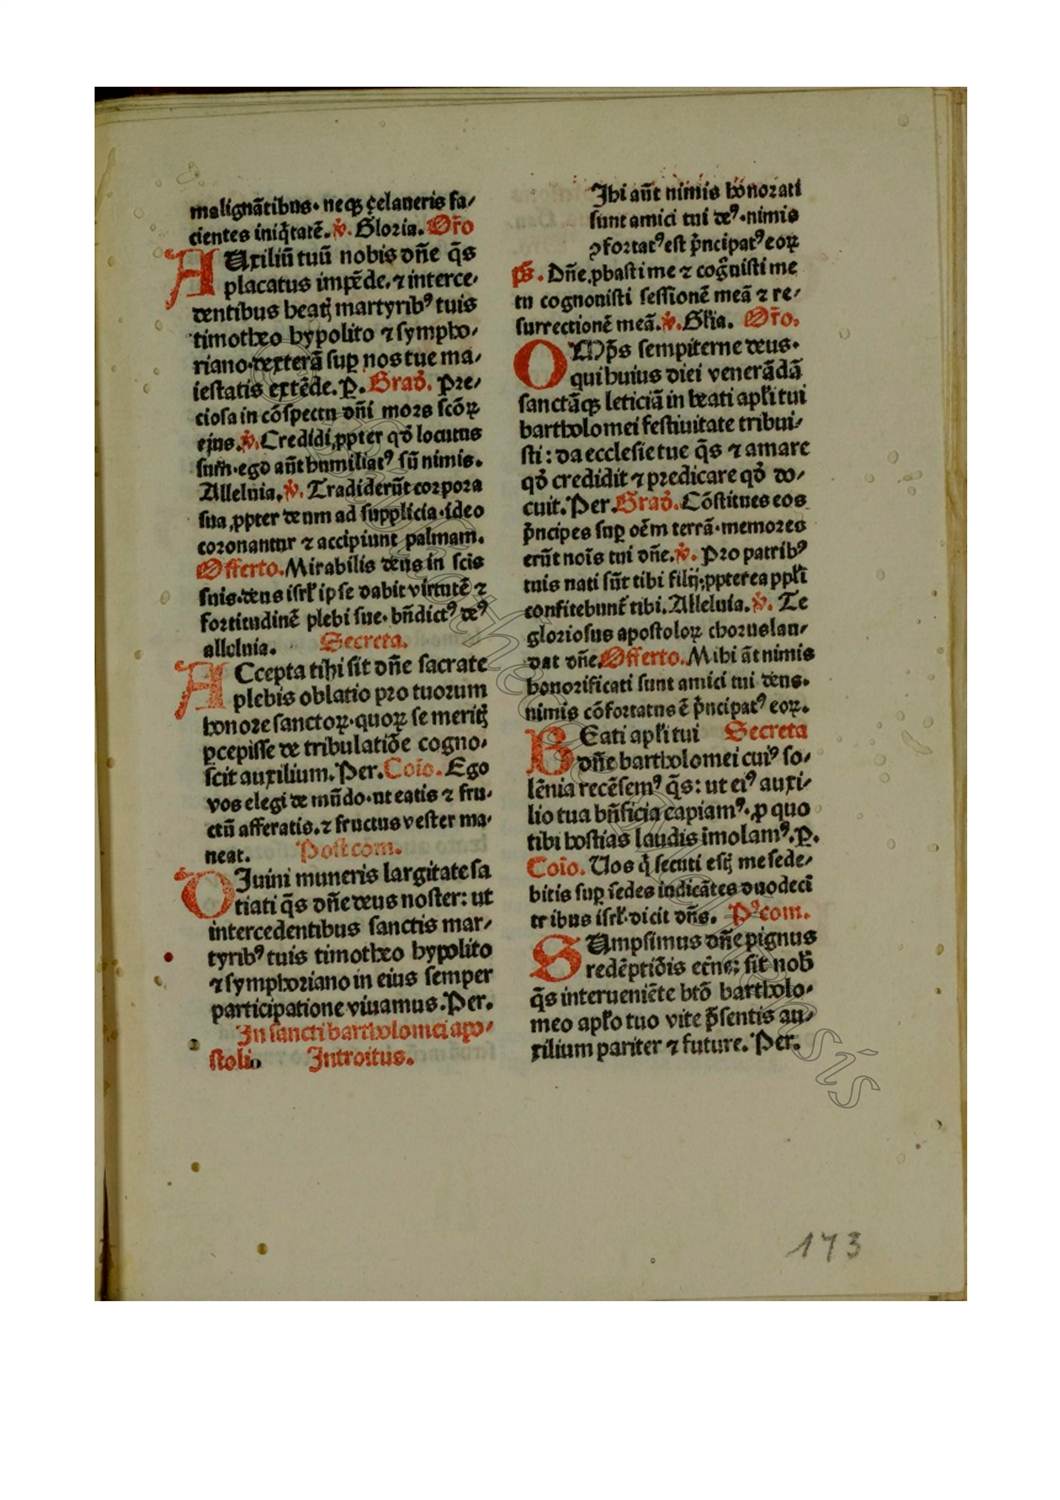 malignātibus· neqꝫ ꝫelaueris fa⸗
cientes iniq̄tatē. ℣. Gloria. Or̄o
AUxiliū tuū nobis dn̄e q̄s
placatus impēde. ⁊ interce⸗
dentibus beatꝭ martyribꝰ tuis
timotheo hypolito ⁊ sympho⸗
riano·dexterā suꝑ nos tue ma⸗
iestatis extēde. P. Grad̄. Pre⸗
ciosa in cōspectu dn̄i mors scōꝝ
ejus. ℣. Credidi ꝓpter qd̄ locutus
sum·ego aūt humiliatꝰ sū nimis.
Alleluia. ℣. Tradiderūt corpora
sua ꝓpter deum ad supplicia·ideo
coronantur ⁊ accipiunt palmam.
Offerto. Mirabilis deus in scīs
suis·deus isrl̄ ipse dabit virtutē ⁊
fortitudinē plebi sue· bn̄dictꝰ deꝰ
alleluia. Secreta.
ACcepta tibi sit dn̄e sacrate
plebis oblatio pro tuorum
honore sanctoꝝ·quoꝝ se meritꝭ
ꝑcepisse de tribulatiōe cogno⸗
scit auxilium. Per. Coīo. Ego
vos elegi de mūdo·ut eatis ⁊ fru⸗
ctū afferatis. ⁊ fructus vester ma⸗
neat. Postcom.
DIuini muneris largitate sa
tiati q̄s dn̄e deus noster: ut
intercedentibus sanctis mar⸗
tyribꝰ tuis timotheo hypolito
⁊ symphoriano in eius semper
participatione viuamus. Per.
In sancti bartholomei apo⸗
stoli Introitus.
Ihi aūt nimis honorati
sunt amici tui deꝰ·nimis
ꝯfortatꝰ est p̄ncipatꝰ eoꝝ
ps̄. Dn̄e ꝓbasti me ⁊ cog̅uisti me
tu cognouisti sessionē meā ⁊ re⸗
surrectionē meā. ℣. Gl̄ia. Or̄o.
OMp̄s sempiterne deus·
qui huius diei venerādā
sanctāqꝫ leticiā in beati apl̄i tui
bartholomei festiuitate tribui⸗
sti: da ecclesie tue q̄s ⁊ amare
qd̄ credidit ⁊ predicare qd̄ do⸗
cuit. Per. Grad̄. Cōstitues eos
p̄ncipes suꝑ oēm terrā·memores
erūt noīs tui dn̄e. ℣. Pro patribꝰ
tuis nati sūt tibi filij ꝓpterea ppl̄i
confitebunt̄ tibi. Alleluia. ℣. Te
gloriosus apostoloꝝ chorus lau⸗
dat dn̄e. Offerto. Mihi āt nimis
honorificati sunt amici tui deus.
nimis cōfortatus ē p̄ncipatꝰ eoꝝ.
BEati apl̄i tui Secreta
dn̄e bartholomei cuiꝰ so⸗
lēnia recēsemꝰ q̄s: ut eiꝰ auxi⸗
lio tua bn̄ficia capiamꝰ· ꝓ quo
tibi hostias laudis īmolamꝰ. P.
Coīo. Uos q̄ secuti estꝭ me sede⸗
bitis suꝑ sedes iudicātes duodecī
tribus isrl̄·dicit dn̄s. Pꝰcom.
SUmpsimus dn̄e pignus
redēptiōis etn̄e: sit nob̄
q̄s interueniēte btō bartholo⸗
meo apl̄o tuo vite p̄sentis au⸗
xilium pariter ⁊ future. Per.
173